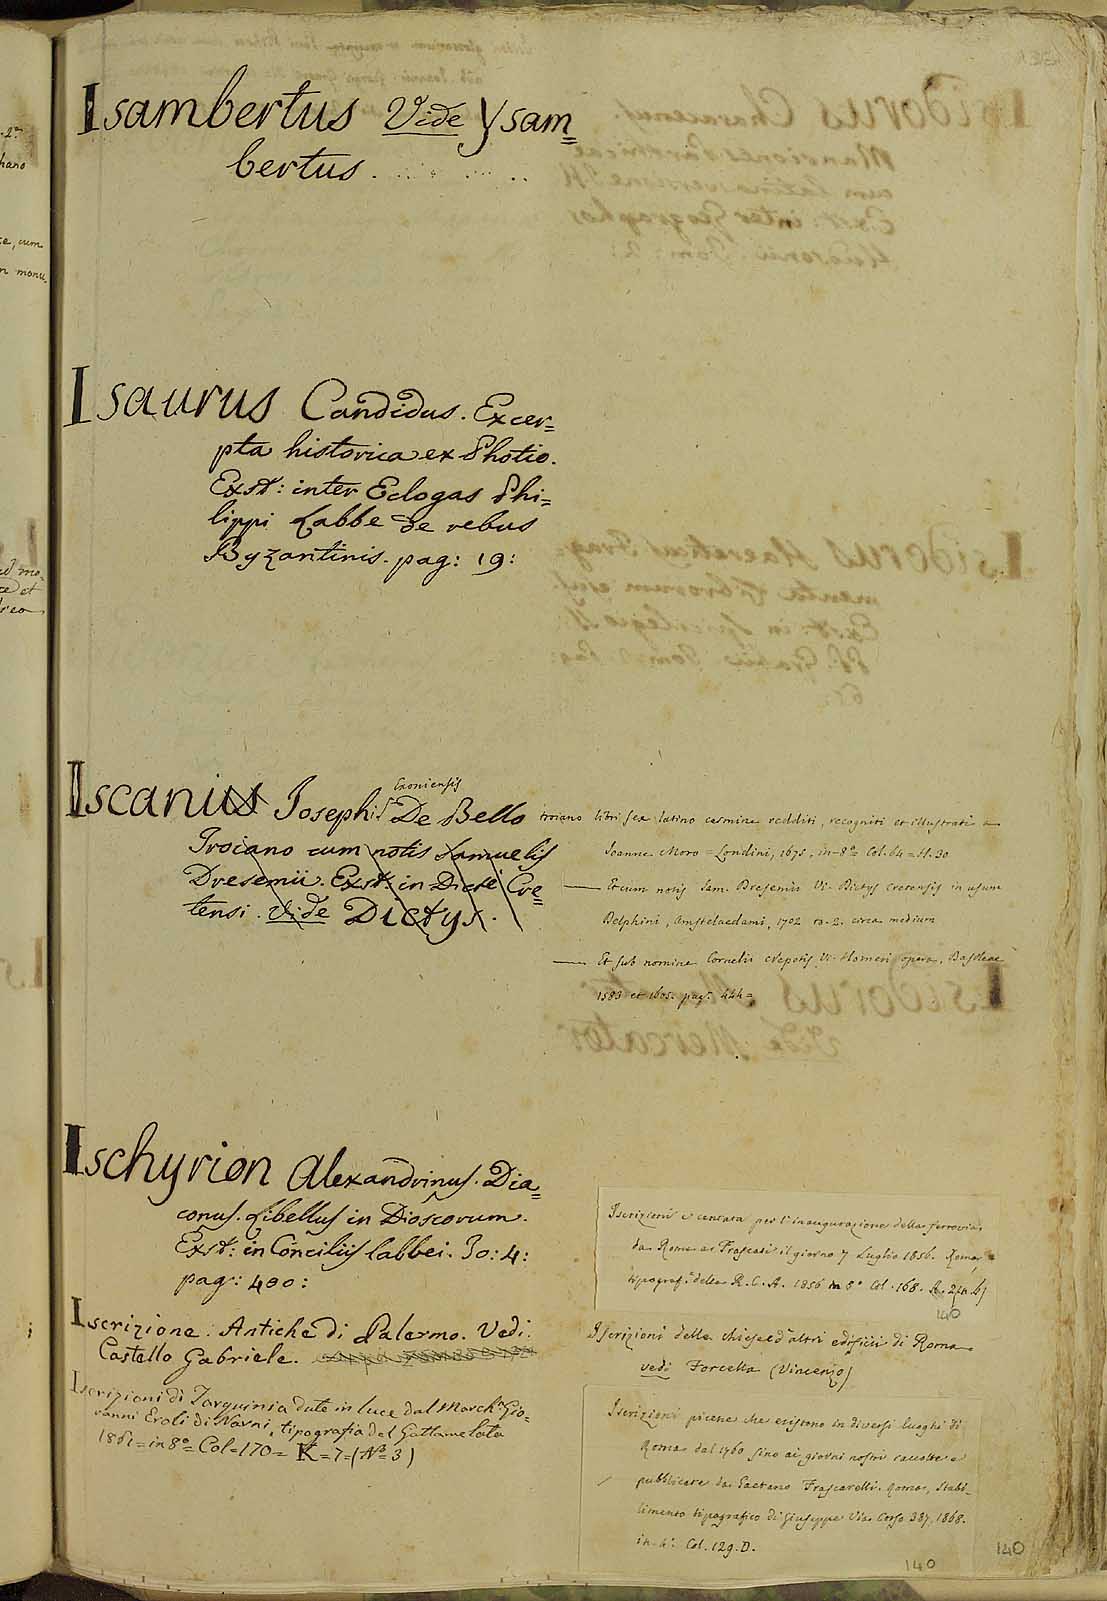 Isambertus Vide Ysam=
bertus.
Isaurus Candidus. Excer=
pta historica ex Photio.
Exst: inter Eclogas Phi=
lippi Labbe de rebus
Byzantinis. pag: 19:
Exoniensis
Iscanius Josephus De Bello troiano libri sex latino carmine redditi, recogniti et illustrati a
Troiano cum notis Samuelis
Joanne Moro = Londini, 1675, in-8º Col. 64 = H. 30
Dresemii. Exst: in Dicte Cre=
tensi. Vide Dictys.
— Et cum notis Sam. Dresemii Vi. Dictys cretensis in usum
Delphini, Amstelaedami, 1702 to. 2. circa medium
— Et sub nomine Cornelii Nepotis Vi. Homeri opera, Basileae
1583 et 1605. pagª 444=
Ischyrion Alexandrinus. Dia=
conus. Libellus in Dioscorum.
Exst: in Conciliis Labbei. To: 4:
pag: 400:
Iscrizione: Antiche di Palermo. Vedi:
Castello Gabriele.
Iscrizioni di Tarquinia date in luce dal Marchº Gio=
vanni Eroli di Narni, tipografia del Gattamelata
186 = in 8º = Col = 170 = K = 7 = (Nº = 3)
Iscrizioni e cantata per l'inaugurazione della ferrovia
da Roma a Frascati il giorno 7 Luglio 1856. Roma,
tipografª della R. C. A. 1856 in 8º Col. 168.
140
Iscrizioni delle chiese e d'altri edificii di Roma
vedi Forcella (Vincenzo)
Iscrizioni picene che esistono in diversi luoghi di
Roma dal 1760 sino ai giorni nostri raccolte e
pubblicate da Gaetano Frascarelli. Roma, Stabi-
limento tipografico di Giuseppe Via Corso 387, 1868.
in. 4º Col. 129. D.
140
140